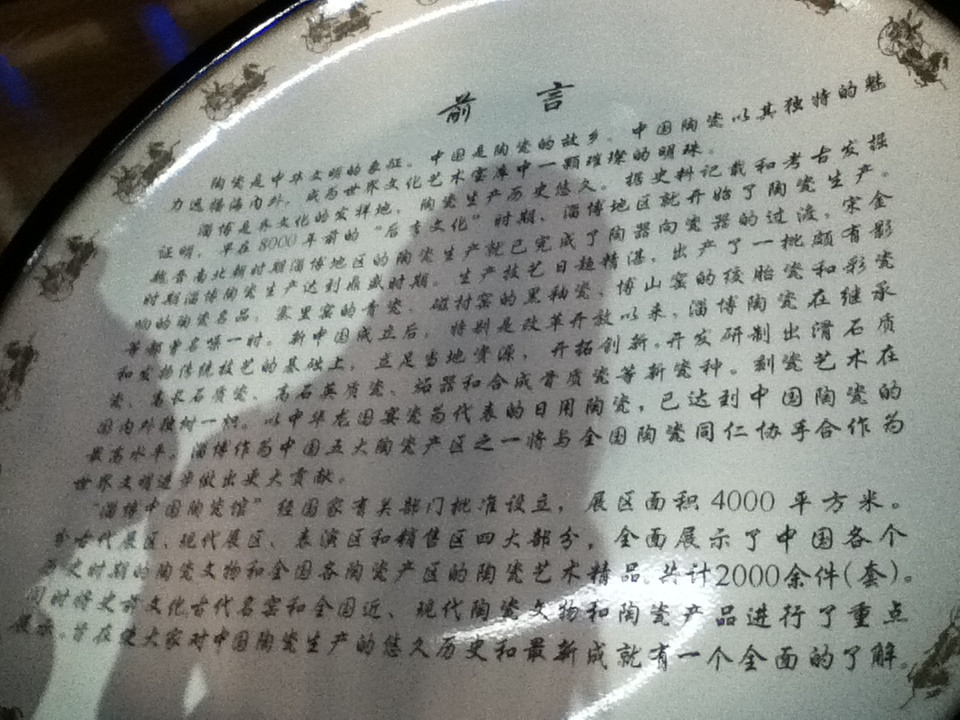 前 言
陶瓷是中华文明的象征。中国是陶瓷的故乡。中国陶瓷以其独特的魅
力远播海内外，成为世界文化艺术宝库中一颗璀璨的明珠。
淄博是齐文化的发祥地，陶瓷生产历史悠久。据史料记载和考古发掘
证明，早在8000年前的“后李文化”时期，淄博地区就开始了陶瓷生产。
魏晋南北朝时期淄博地区的陶瓷生产就已完成了陶器向瓷器的过渡，宋金
时期淄博陶瓷生产达到鼎盛时期。生产技艺日趋精湛，出产了一批颇有影
响的陶瓷名品，寨里窑的青瓷、磁村窑的黑釉瓷、博山窑的绞胎瓷和彩瓷
等都曾名噪一时。新中国成立后，特别是改革开放以来，淄博陶瓷在继承
和发扬传统技艺的基础上，立足当地资源，开拓创新。开发研制出滑石质
瓷、高长石质瓷、高石英质瓷、炻器和合成骨质瓷等新瓷种。刻瓷艺术在
国内外独树一帜。以中华龙国宴瓷为代表的日用陶瓷，已达到中国陶瓷的
最高水平。淄博作为中国五大陶瓷产区之一将与全国陶瓷同仁协手合作为
世界文明进步做出更大贡献。
“淄博中国陶瓷馆”经国家有关部门批准设立，展区面积4000平方米。
分古代展区、现代展区、表演区和销售区四大部分，全面展示了中国各个
历史时期的陶瓷文物和全国各陶瓷产区的陶瓷艺术精品,共计2000余件(套)。
同时将史前文化,古代名窑和全国近、现代陶瓷文物和陶瓷产品进行了重点
展示。旨在使大家对中国陶瓷生产的悠久历史和最新成就有一个全面的了解。